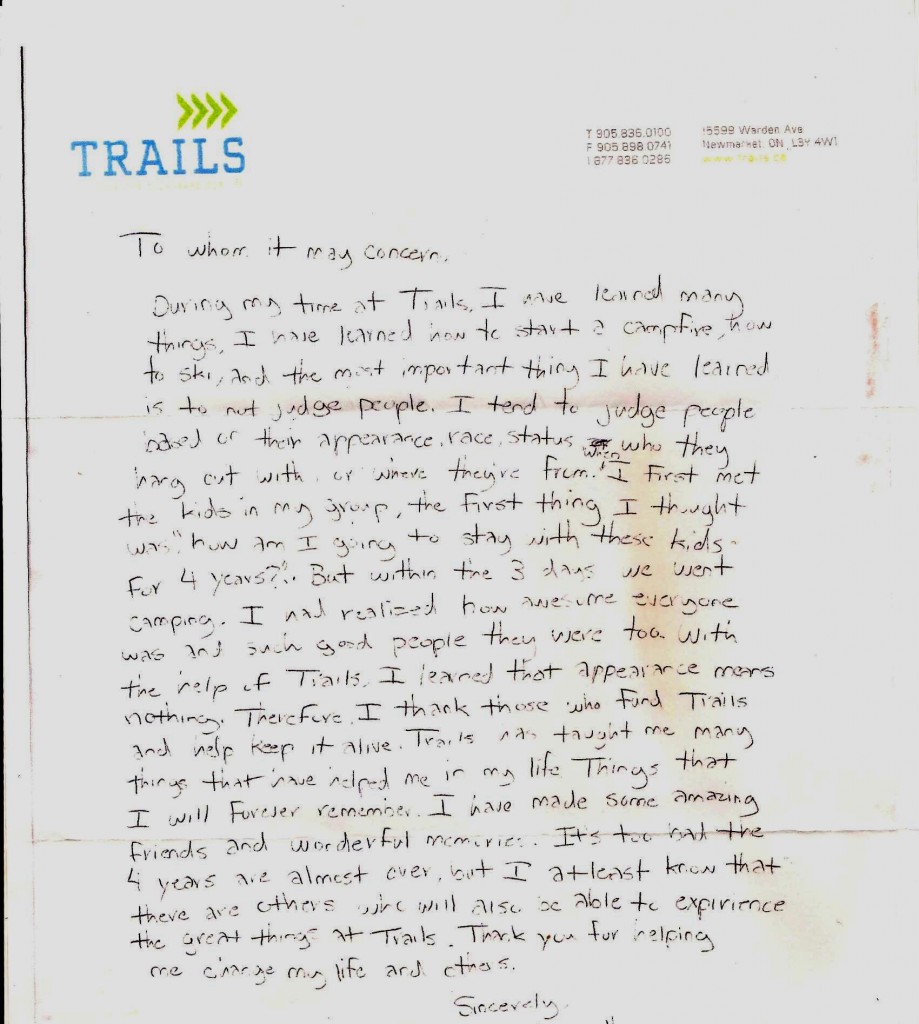 TRAILS
T 905.836.0100
F 905 898 0741
1 877 836 0285
15599 Warden Ave
Newmarket, ON, L3Y 4W1
www.trails.ca
To whom it may concern,
During my time at Trails, I have learned many
things, I have learned how to start a campfire, how
to ski, and the most important thing I have learned
is to not judge people. I tend to judge people
based of their appearance, race, status, who they
hang out with, or where they're from. When I first met
the kids in my group, the first thing I thought
was "how am I going to stay with these kids
for 4 years?". But within the 3 days we went
camping. I had realized how awesome everyone
was and such good people they were too. With
the help of Trails, I learned that appearance means
nothing. Therefore, I thank those who fund Trails
and help keep it alive. Trails has taught me many
things that have helped me in my life Things that
I will forever remember. I have made some amazing
friends and wonderful memories. It's too bad the
4 years are almost over, but I atleast know that
there are others who will also be able to expirience
the great things at Trails. Thank you for helping
me change my life and others.
Sincerely,